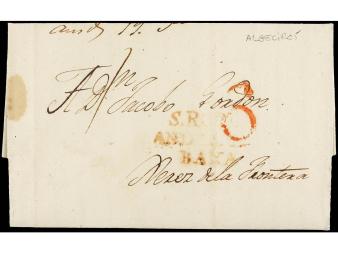 ALGECIRAS
A D.n Jacobo Gordon
3
S.R
AND
BAXA
Xerez de la Frontera